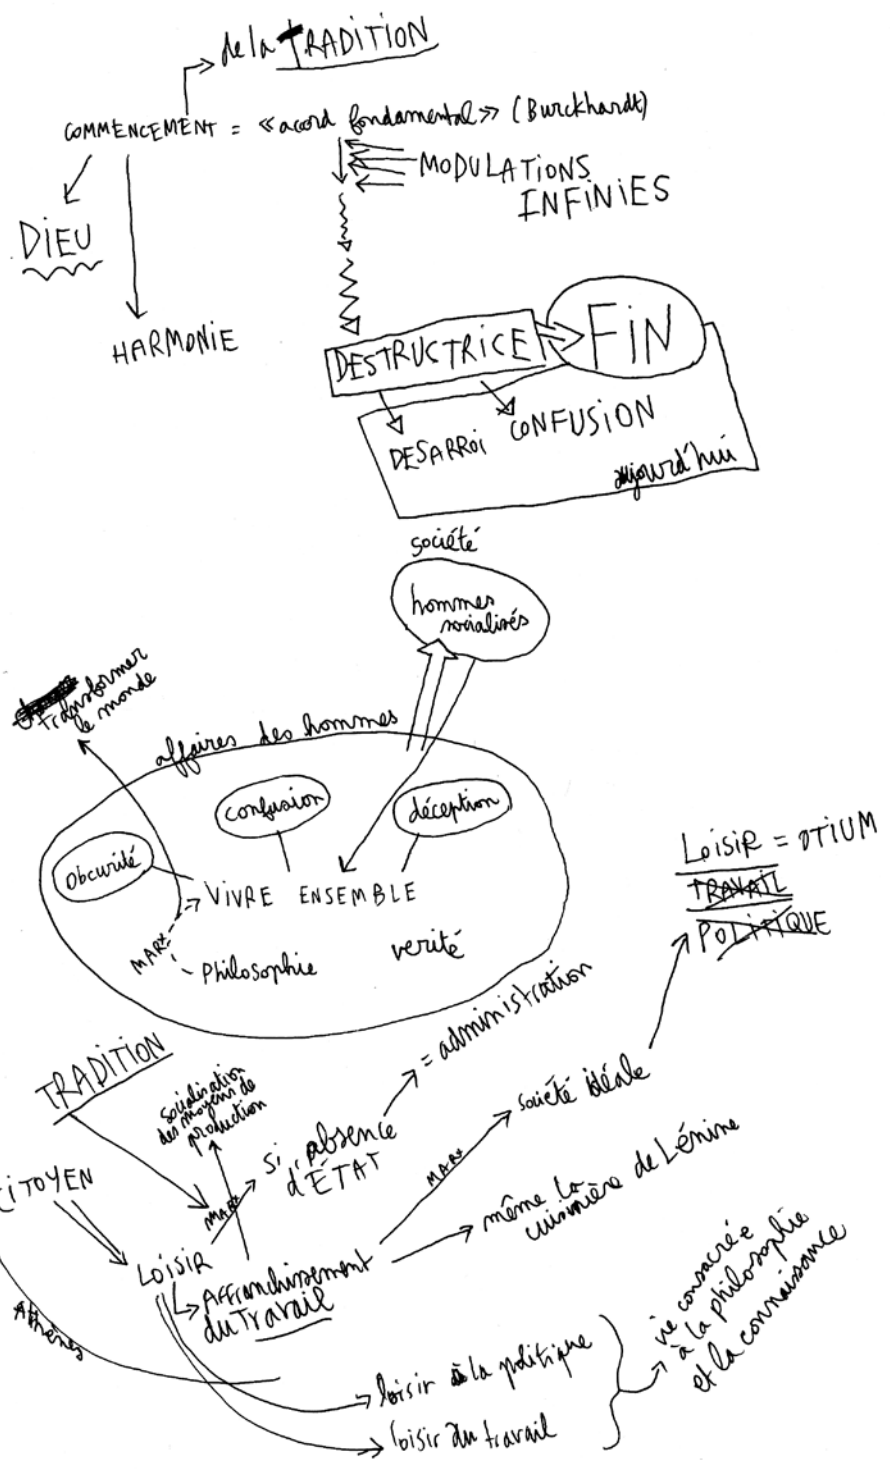 de la TRADITION
COMMENCEMENT = «acord fondamental» (Burckhardt)
MODULATIONS
INFINIES
DIEU
HARMONIE
DESTRUCTRICE
FIN
DESARROI
CONFUSION
aujourd'hui
société
hommes
socialisés
transformer
le monde
affaires des hommes
confusion
déception
obcurité
VIVRE ENSEMBLE
MARX
philosophie
verité
LOISIR = OTIUM
TRAVAIL
POLITIQUE
TRADITION
socialisation
des moyens de
production
= administration
si absence
d'ÉTAT
société idéale
MARX
MARX
CITOYEN
même la
cuisinière de Lénine
LOISIR
AFFranchissement
du Travail
Athènes
loisir à la politique
loisir du travail
vie consacrée
à la philosophie
et la connaissance